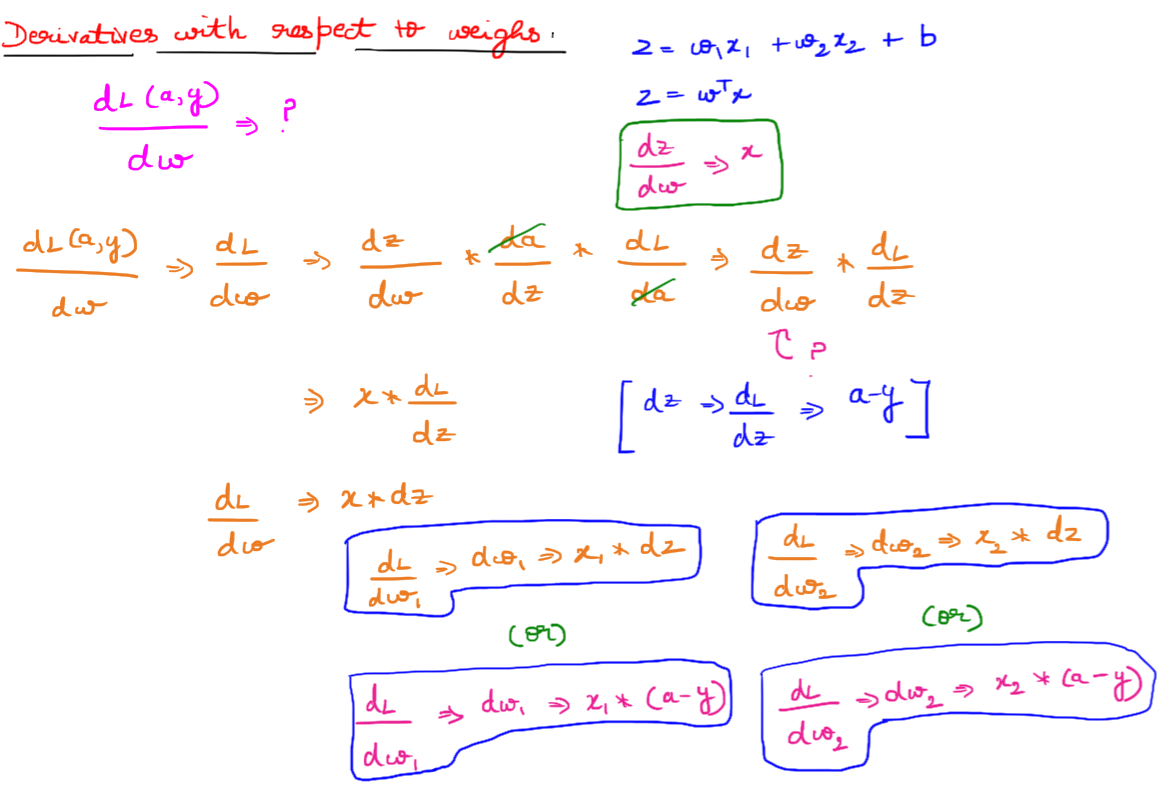 Derivatives with respect to weighs.
z = w₁x₁ + w₂x₂ + b
z = wᵀx
dL(a,y)/dw ⇒ ?
dz/dw ⇒ x
dL(a,y)/dw ⇒ dL/dw ⇒ dz/dw * da/dz * dL/da ⇒ dz/dw * dL/dz
?
⇒ x * dL/dz
[dz ⇒ dL/dz ⇒ a-y]
dL/dw ⇒ x * dz
dL/dw₁ ⇒ dw₁ ⇒ x₁ * dz
dL/dw₂ ⇒ dw₂ ⇒ x₂ * dz
(or)
(or)
dL/dw₁ ⇒ dw₁ ⇒ x₁ * (a-y)
dL/dw₂ ⇒ dw₂ ⇒ x₂ * (a-y)